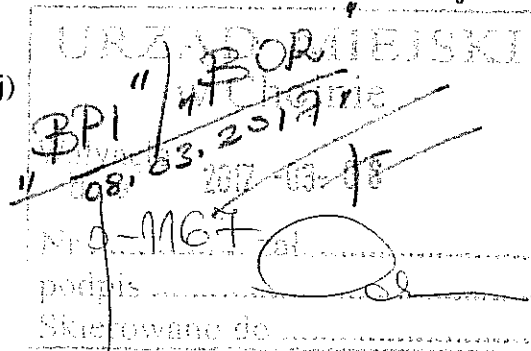 i)
URZĄD MIEJSKI
"BPI" "BOR"
w
08.03.2017
2017 -03- 08
Nr 0-1167 zał.
podpis
Skierowano do